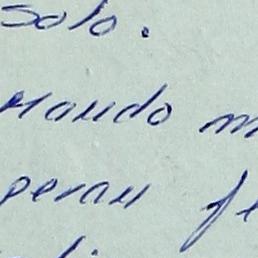 solo.
Mando m
peran fe